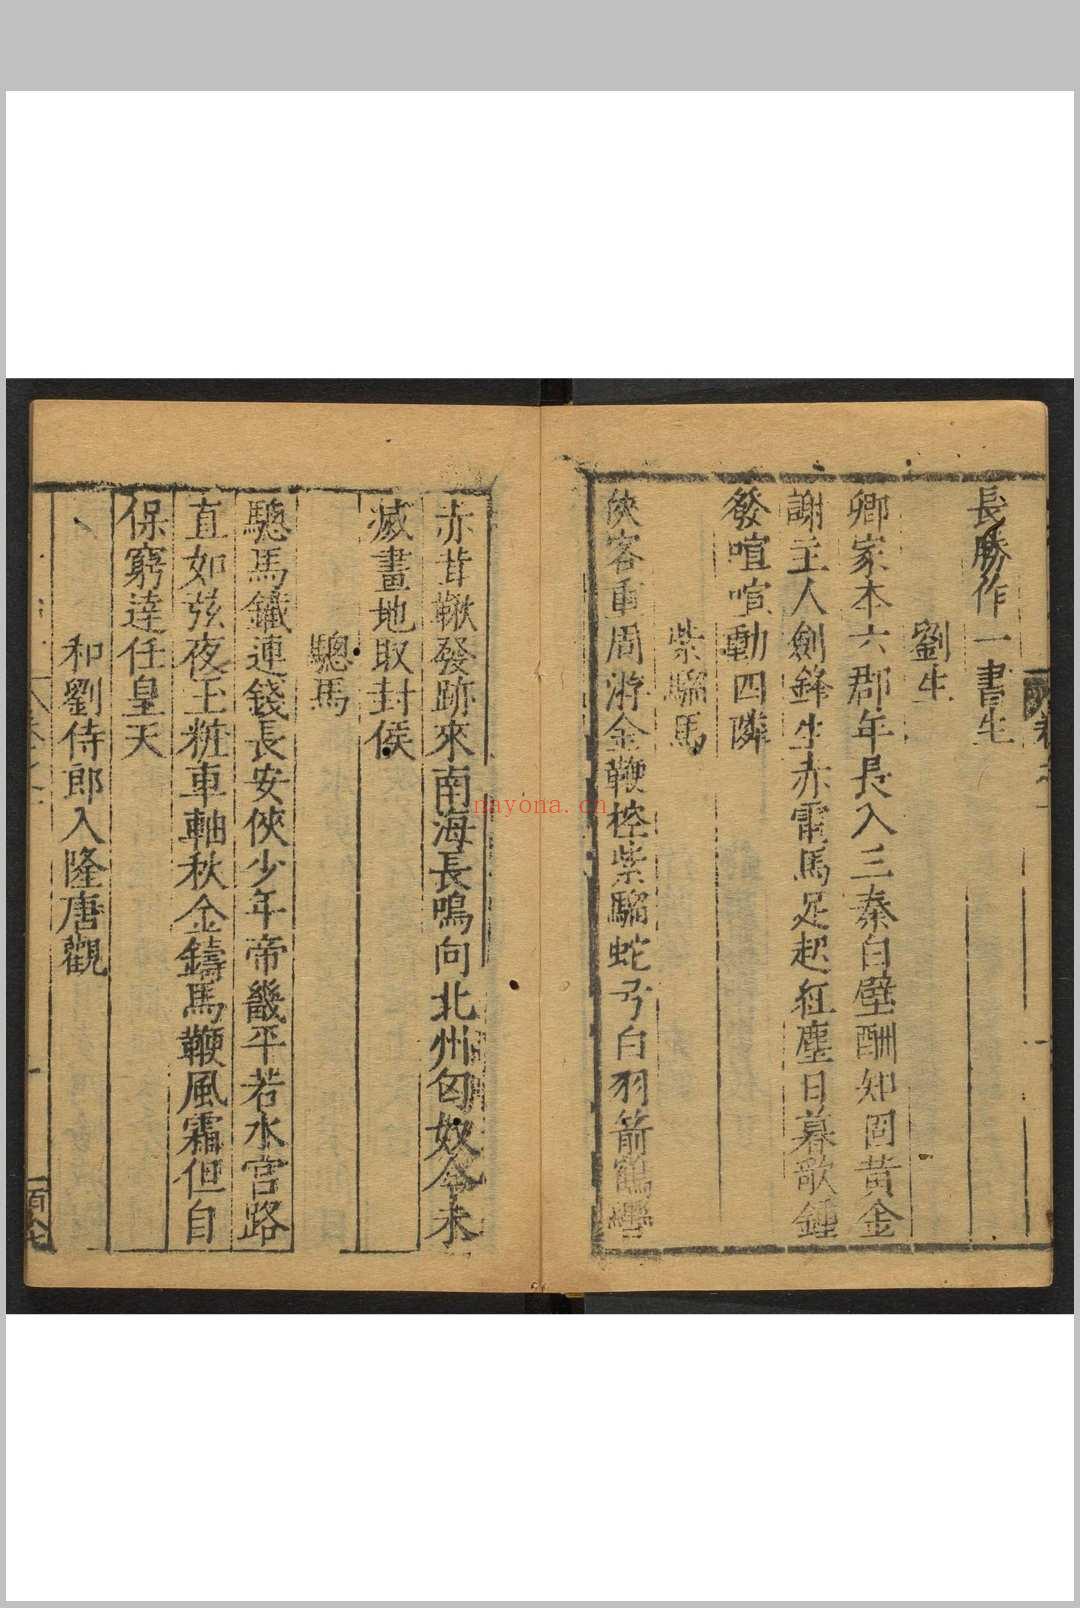 長勝作一書生
劉生
卿家本六郡年長入三秦白璧酬知囙黃金
謝主人劍鋒生赤電馬足起紅塵日暮歌鍾
發喧喧動四隣
紫騮馬
俠客重周游金鞭控紫騮蛇弓白羽箭鶴轡
赤茸鞦發跡來南海長鳴向北州匈奴今未
滅畫地取封侯
驄馬
驄馬鐵連錢長安俠少年帝畿平若水官路
直如弦夜玉粧車軸秋金鑄馬鞭風霜但自
保窮達任皇天
和劉侍郎入隆唐觀
nayona.cn